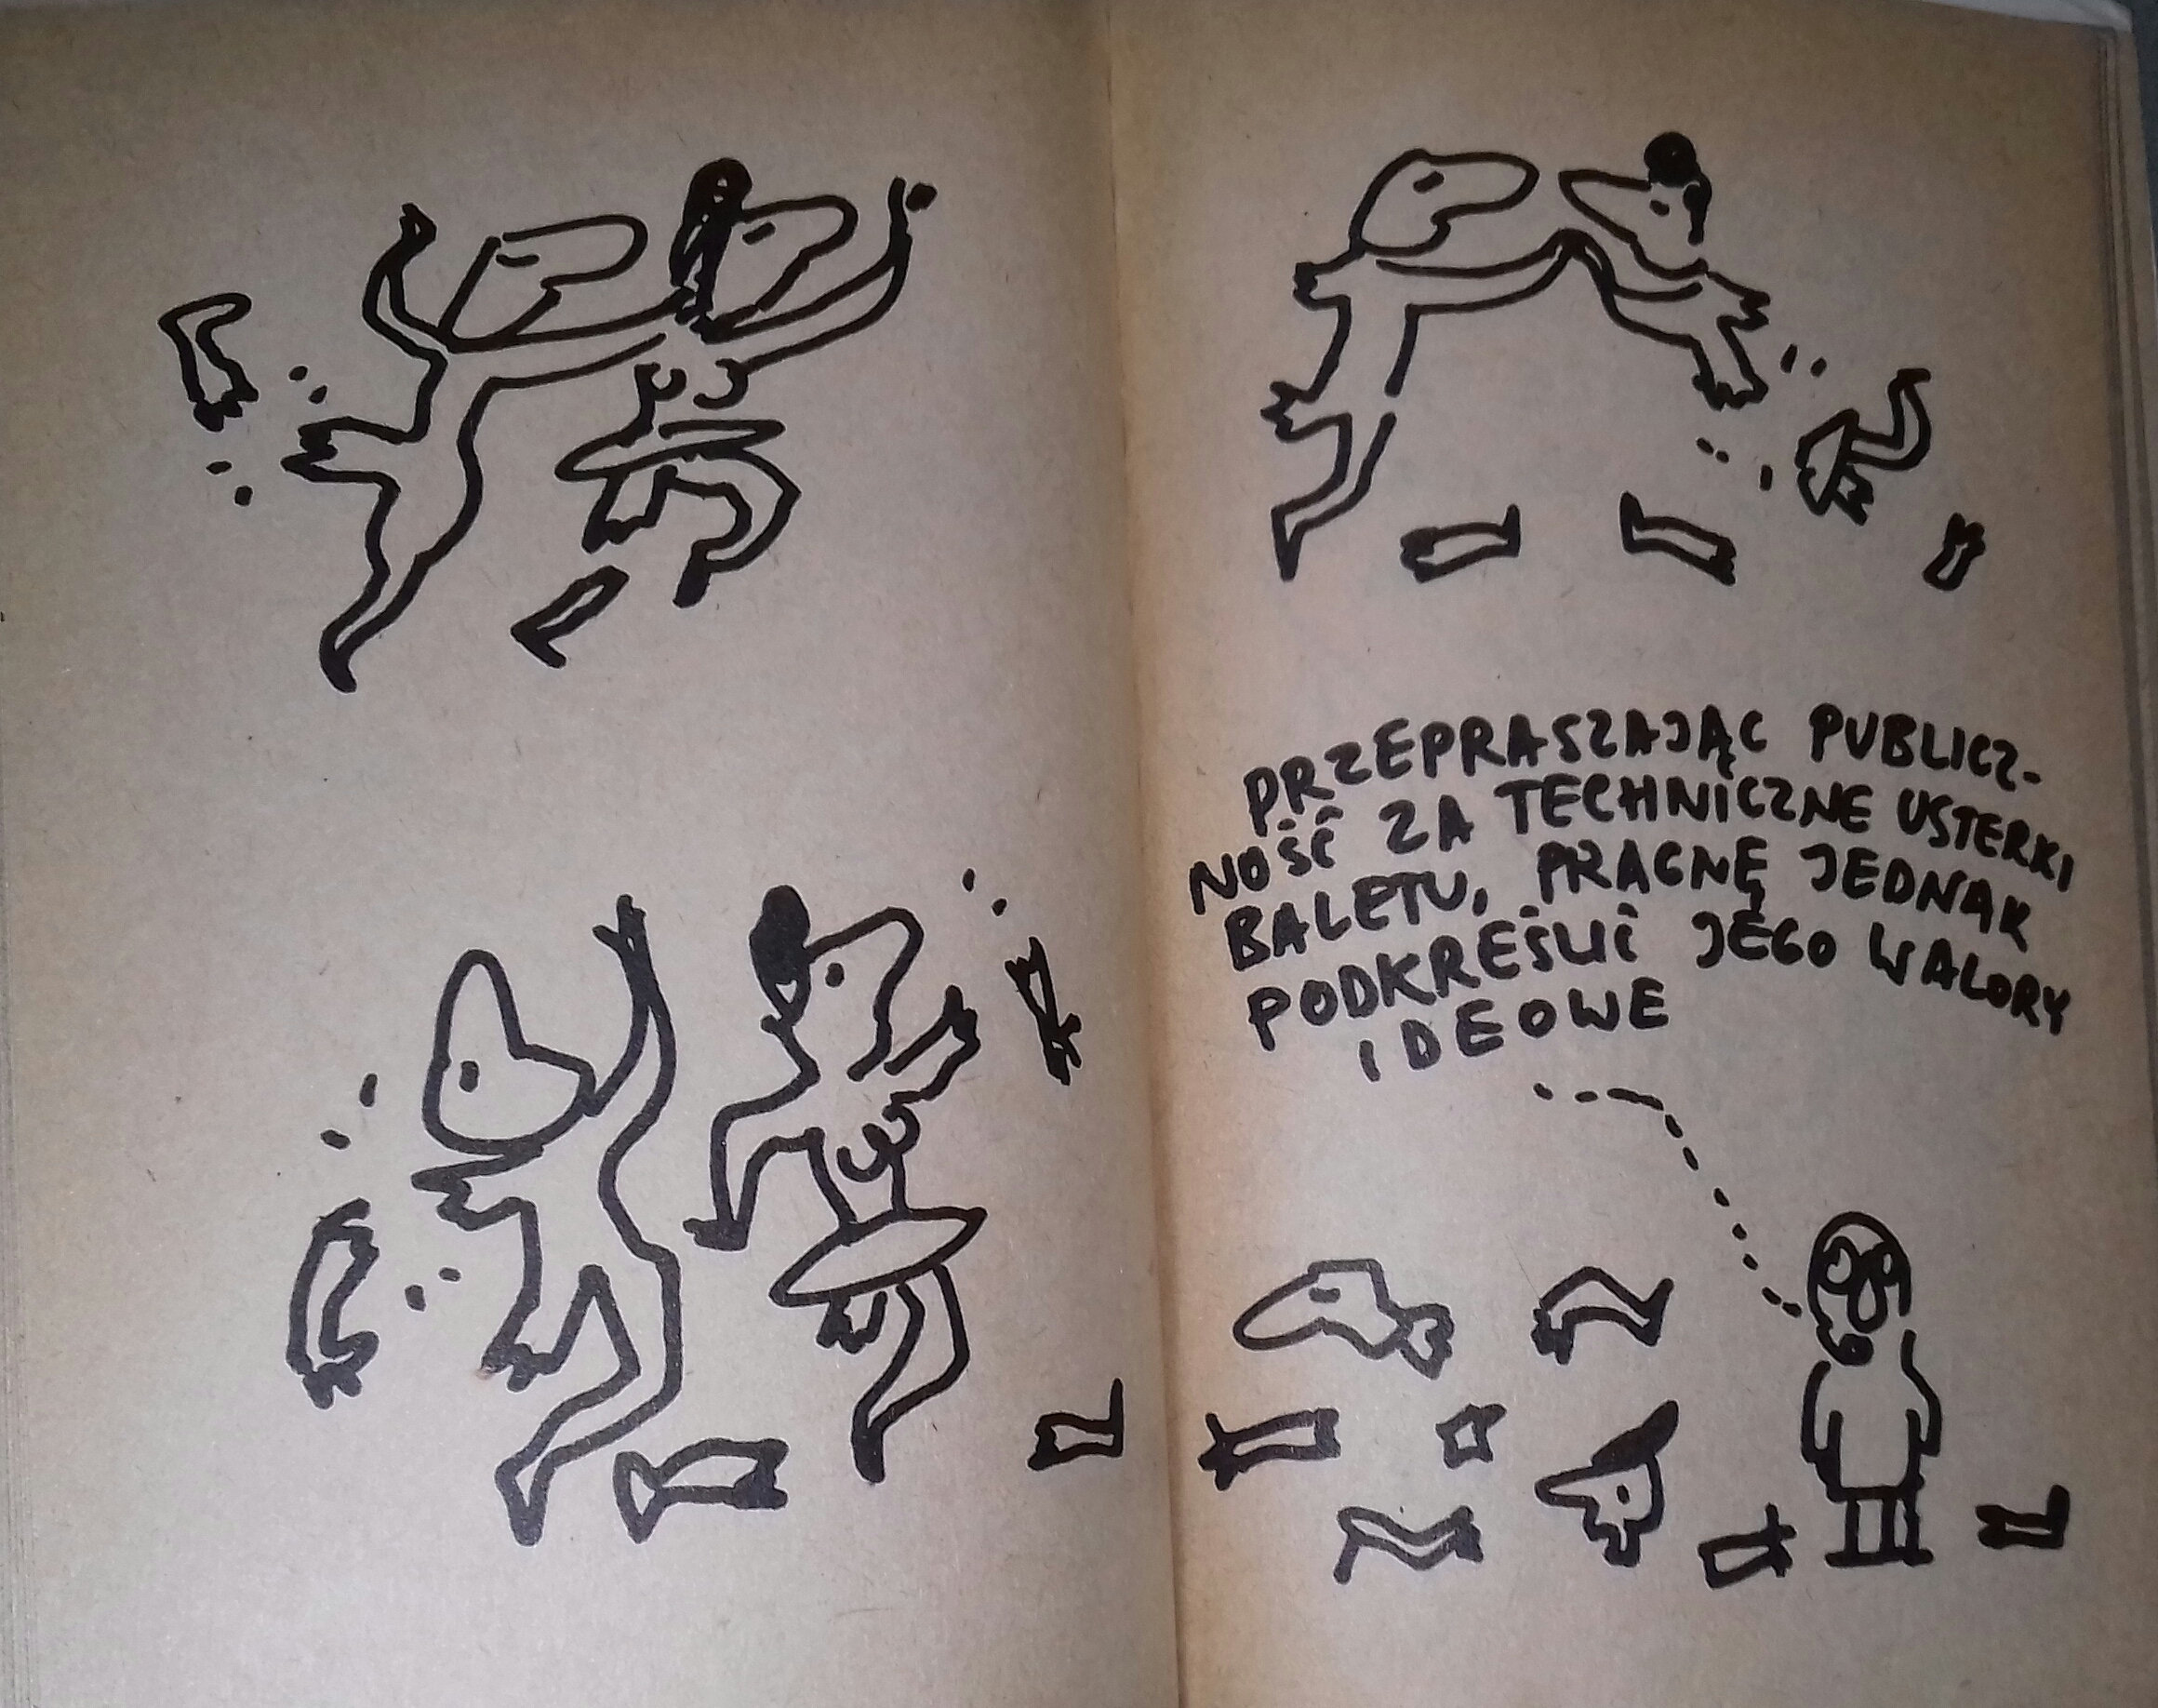 PRZEPRASZAJĄC PUBLICZ-
NOŚĆ ZA TECHNICZNE USTERKI
BALETU, PRAGNĘ JEDNAK
PODKREŚLIĆ JEGO WALORY
IDEOWE